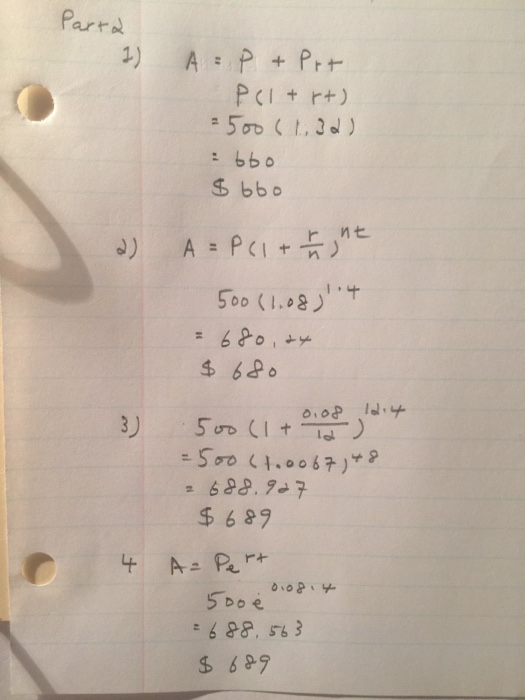 Part 2
1) A = P + Prt
P(1 + rt)
= 500 (1.32)
= 660
$ 660
2) A = P(1 + r/n)^nt
500 (1.08)^1·4
= 680.24
$ 680
3) 500 (1 + 0.08/12)^12·4
= 500 (1.0067)^48
= 688.927
$ 689
4 A = Pe^rt
500e^0.08·4
= 688.563
$ 689